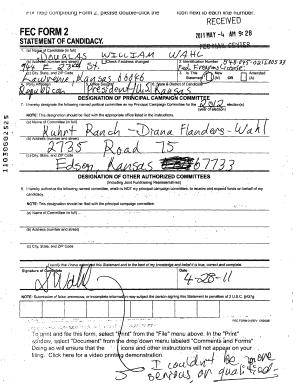 FEC FORM 2, please double-click the icon next to each line number.
RECEIVED
FEC FORM 2
STATEMENT OF CANDIDACY.
2011 MAY -4 AM 9:28
FEC MAIL CENTER
1. (a) Name of Candidate (in full)
Douglas William Wahl
(b) Address (number and street)
Check if address changed
2. Identification Number
E 23rd St.
(c) City, State, and ZIP Code
3. Is This Statement
New (N) OR
Amended (A)
Lawrence Kansas 66046
Republican
President U.S.
Kansas
DESIGNATION OF PRINCIPAL CAMPAIGN COMMITTEE
7. I hereby designate the following named political committee as my Principal Campaign Committee for the 2012 election(s)
(year of election)
NOTE: This designation should be filed with the appropriate office listed in the instructions.
(a) Name of Committee (in full)
Ruhrt Ranch - Diana Flanders-Wahl
(b) Address (number and street)
2735 Road 75
(c) City, State, and ZIP Code
Edson, Kansas 67733
DESIGNATION OF OTHER AUTHORIZED COMMITTEES
(Including Joint Fundraising Representatives)
8. I hereby authorize the following named committee, which is NOT my principal campaign committee, to receive and expend funds on behalf of my candidacy.
NOTE: This designation should be filed with the principal campaign committee.
(a) Name of Committee (in full)
(b) Address (number and street)
(c) City, State, and ZIP Code
I certify that I have examined this Statement and to the best of my knowledge and belief it is true, correct and complete.
Signature of Candidate
Date
Wahl
4-28-11
NOTE: Submission of false, erroneous, or incomplete information may subject the person signing this Statement to penalties of 2 U.S.C. §437g.
To print and file this form, select "Print" from the "File" menu above. In the "Print"
window, select "Document" from the drop down menu labeled "Comments and Forms"
Doing so will ensure that the icons and other instructions will not appear on your
filing. Click here for a video printing demonstration.
I couldn't be more
serious or qualified.
11030602525